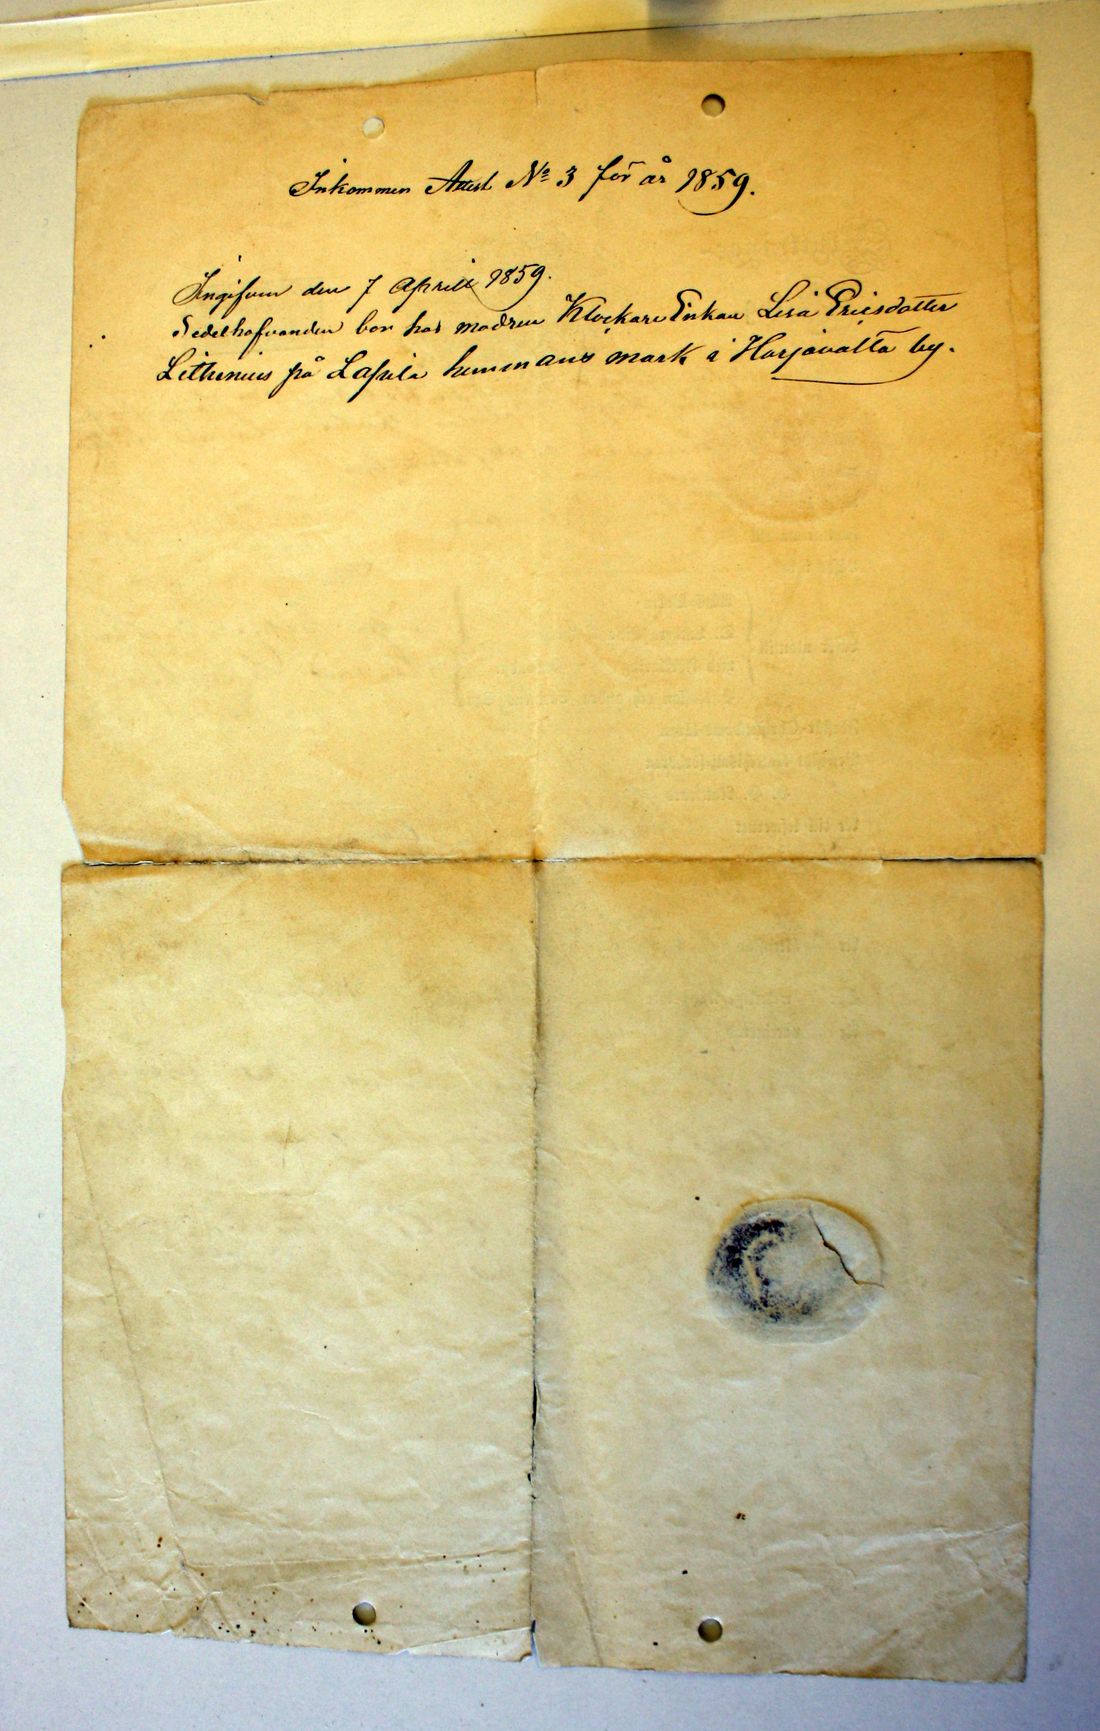 Inkommen Attest No 3 för år 1859.
Ingifven den 7 Aprill 1859.
Sedelhafvanden bor hos modren Klockare Enkan Lisa Ericsdotter
Lithenius på Lassila hemmans mark i Harjavalta by.